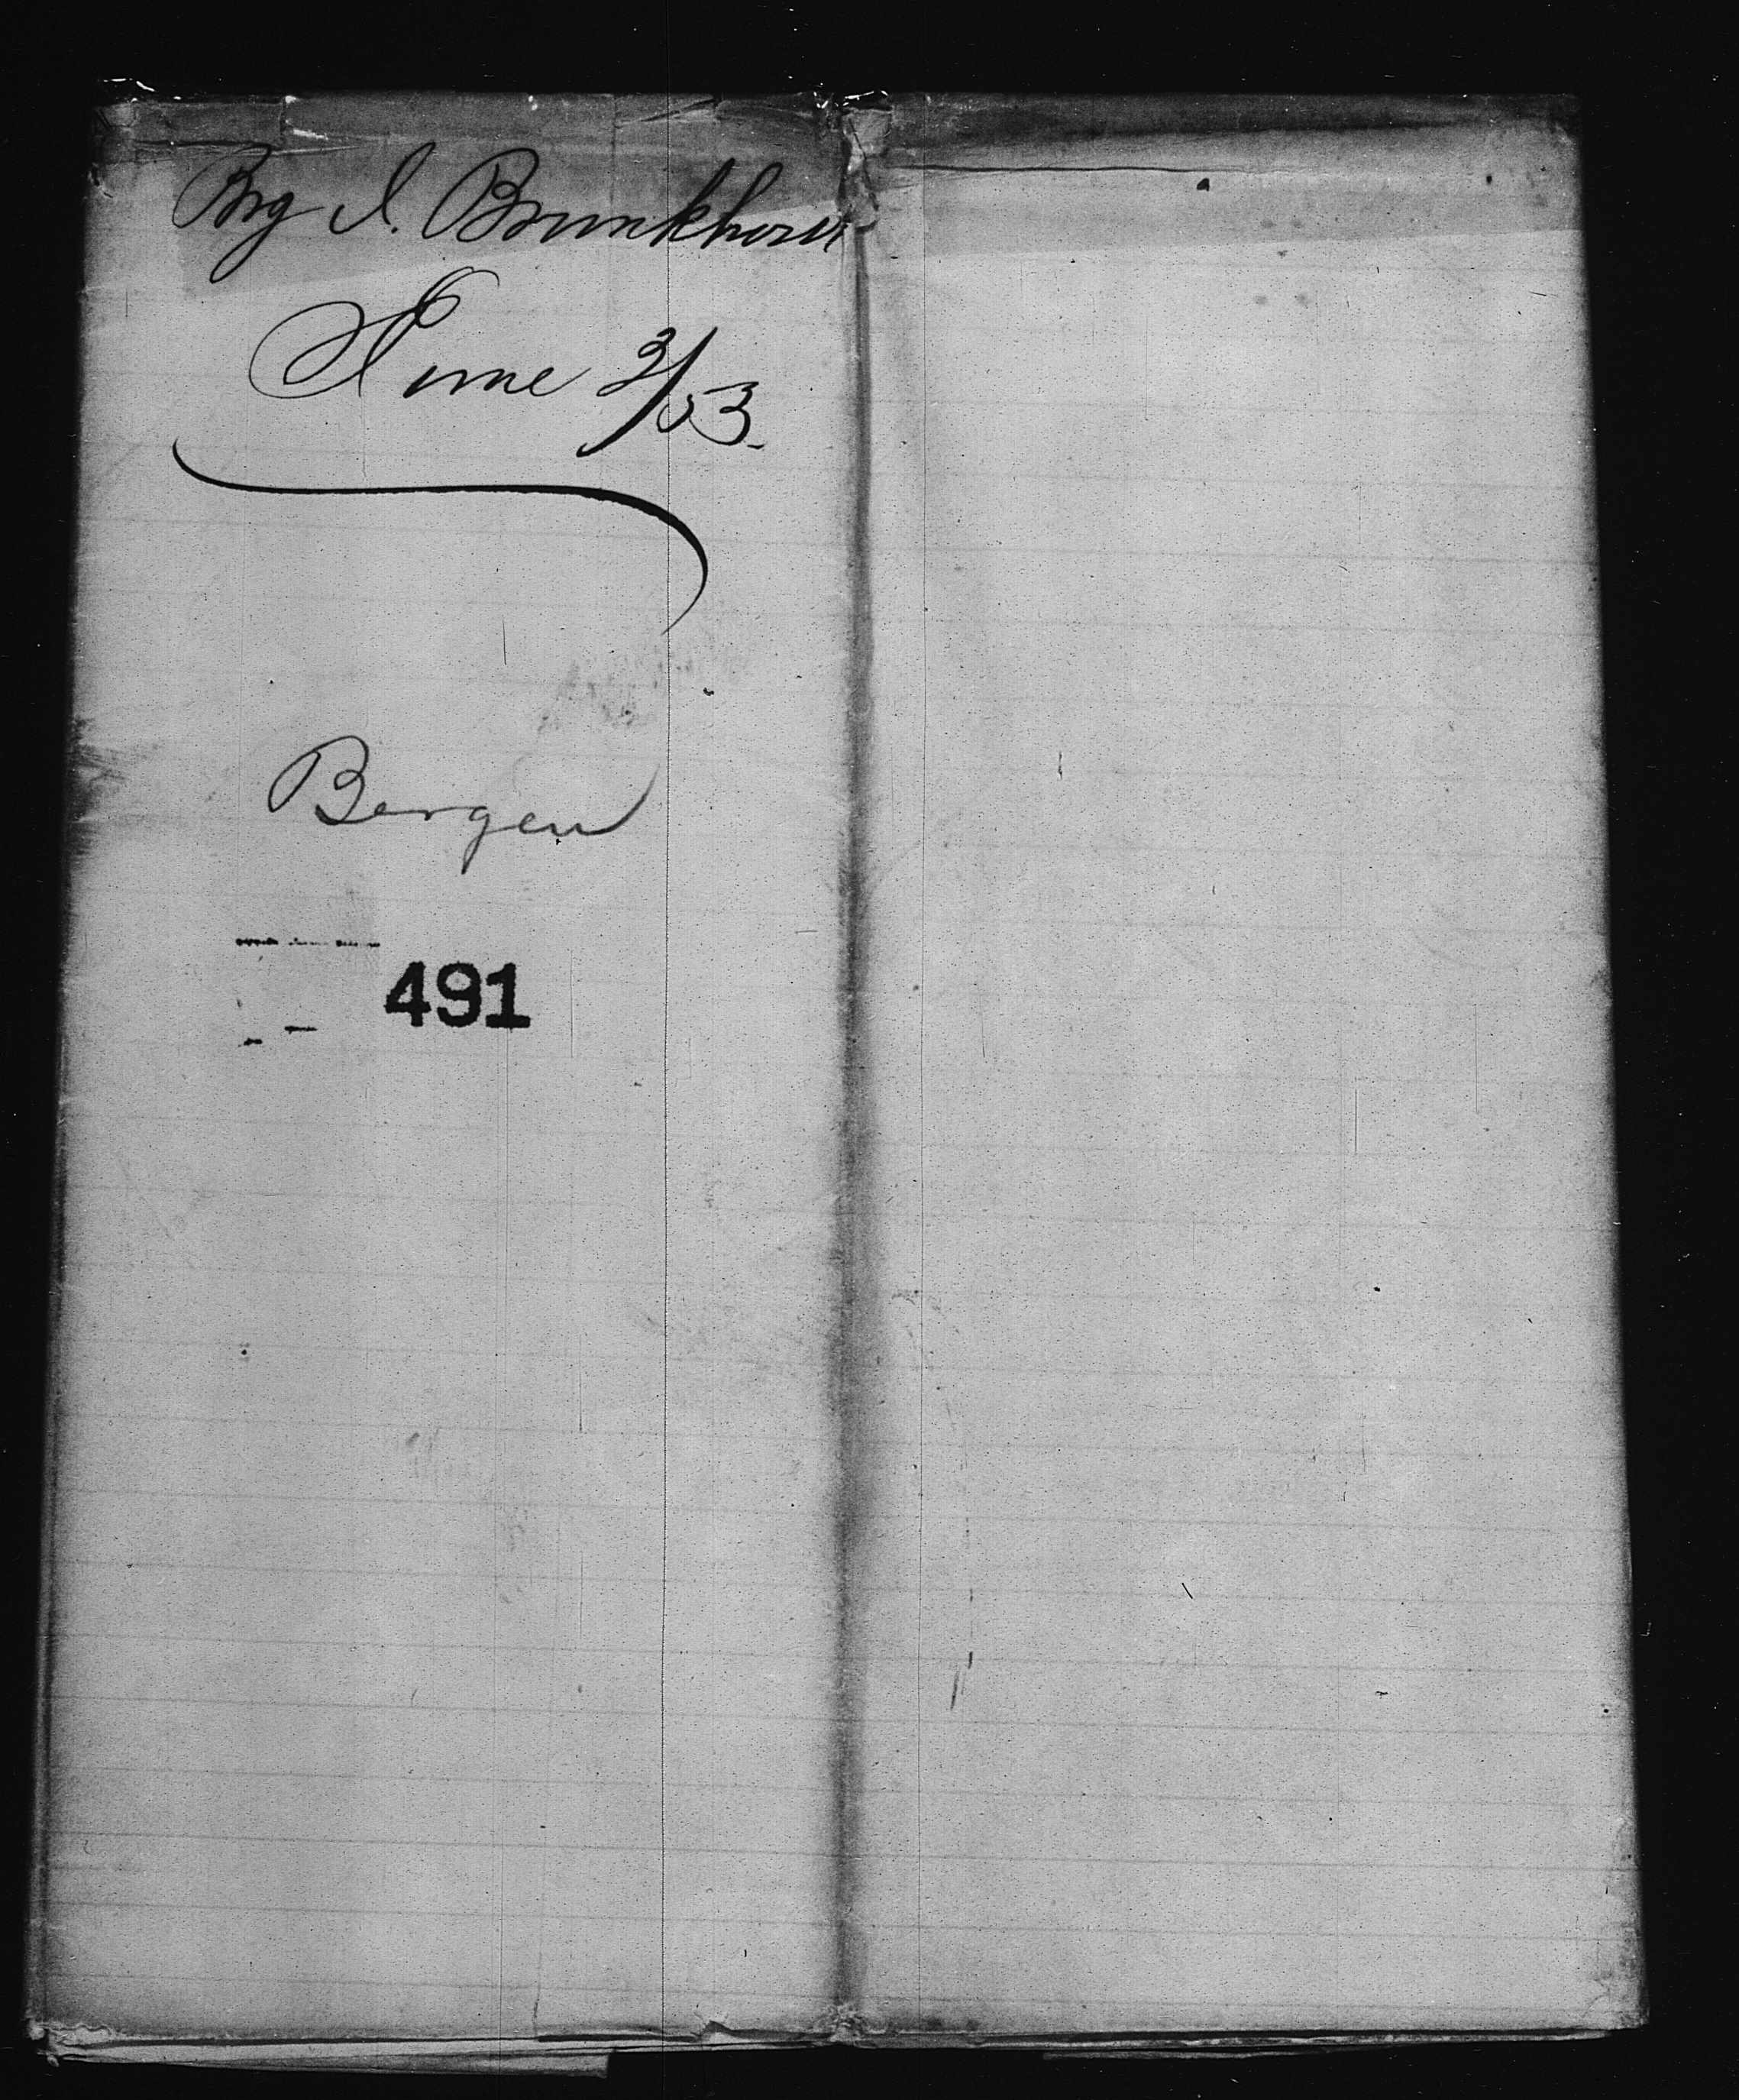 Brg J. Brunkhorst
June 3/53.
Bergen
491